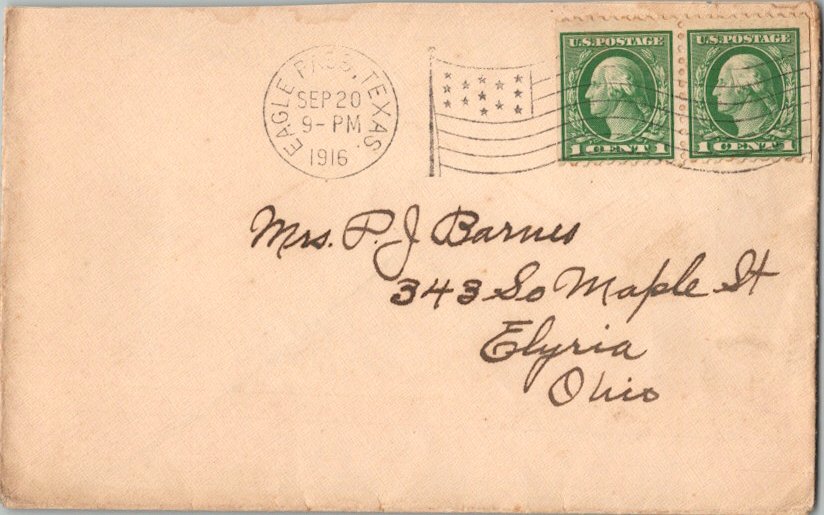 EAGLE PASS, TEXAS.
SEP 20
9-PM
1916
U.S. POSTAGE
1 CENT 1
U.S. POSTAGE
1 CENT 1
Mrs. P. J Barnes
343 So Maple St
Elyria
Ohio